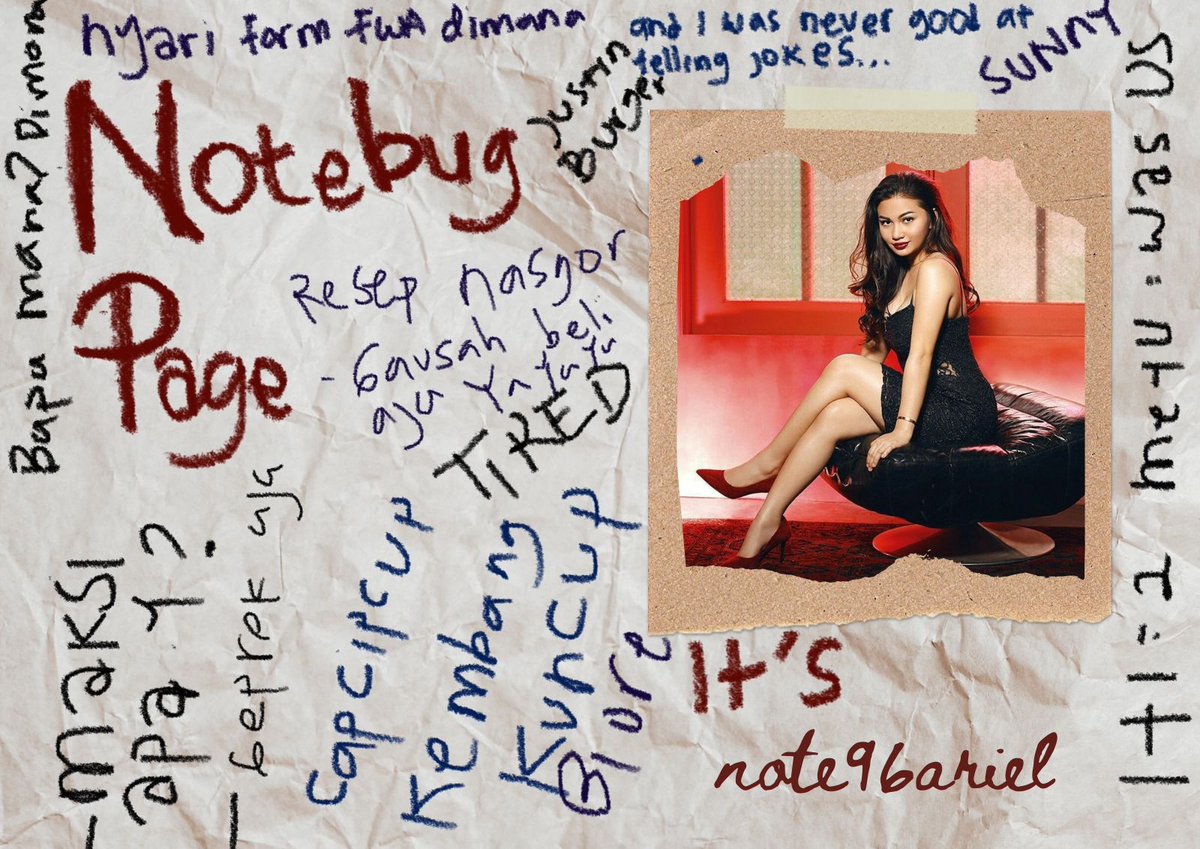 nyari form FWA dimana
and I was never good at
telling jokes...
SUNNY
Justin
Burger
Bapa mana? Dimana
Notebug
Page
Resep nasgor
- Gausah beli
aja Ya
TIRED
- MaKSI
apa Y?
- Geprek aja
Capcipcup
Kembang
Kuncup
1+1=2 me+u=was US
It's
note96ariel